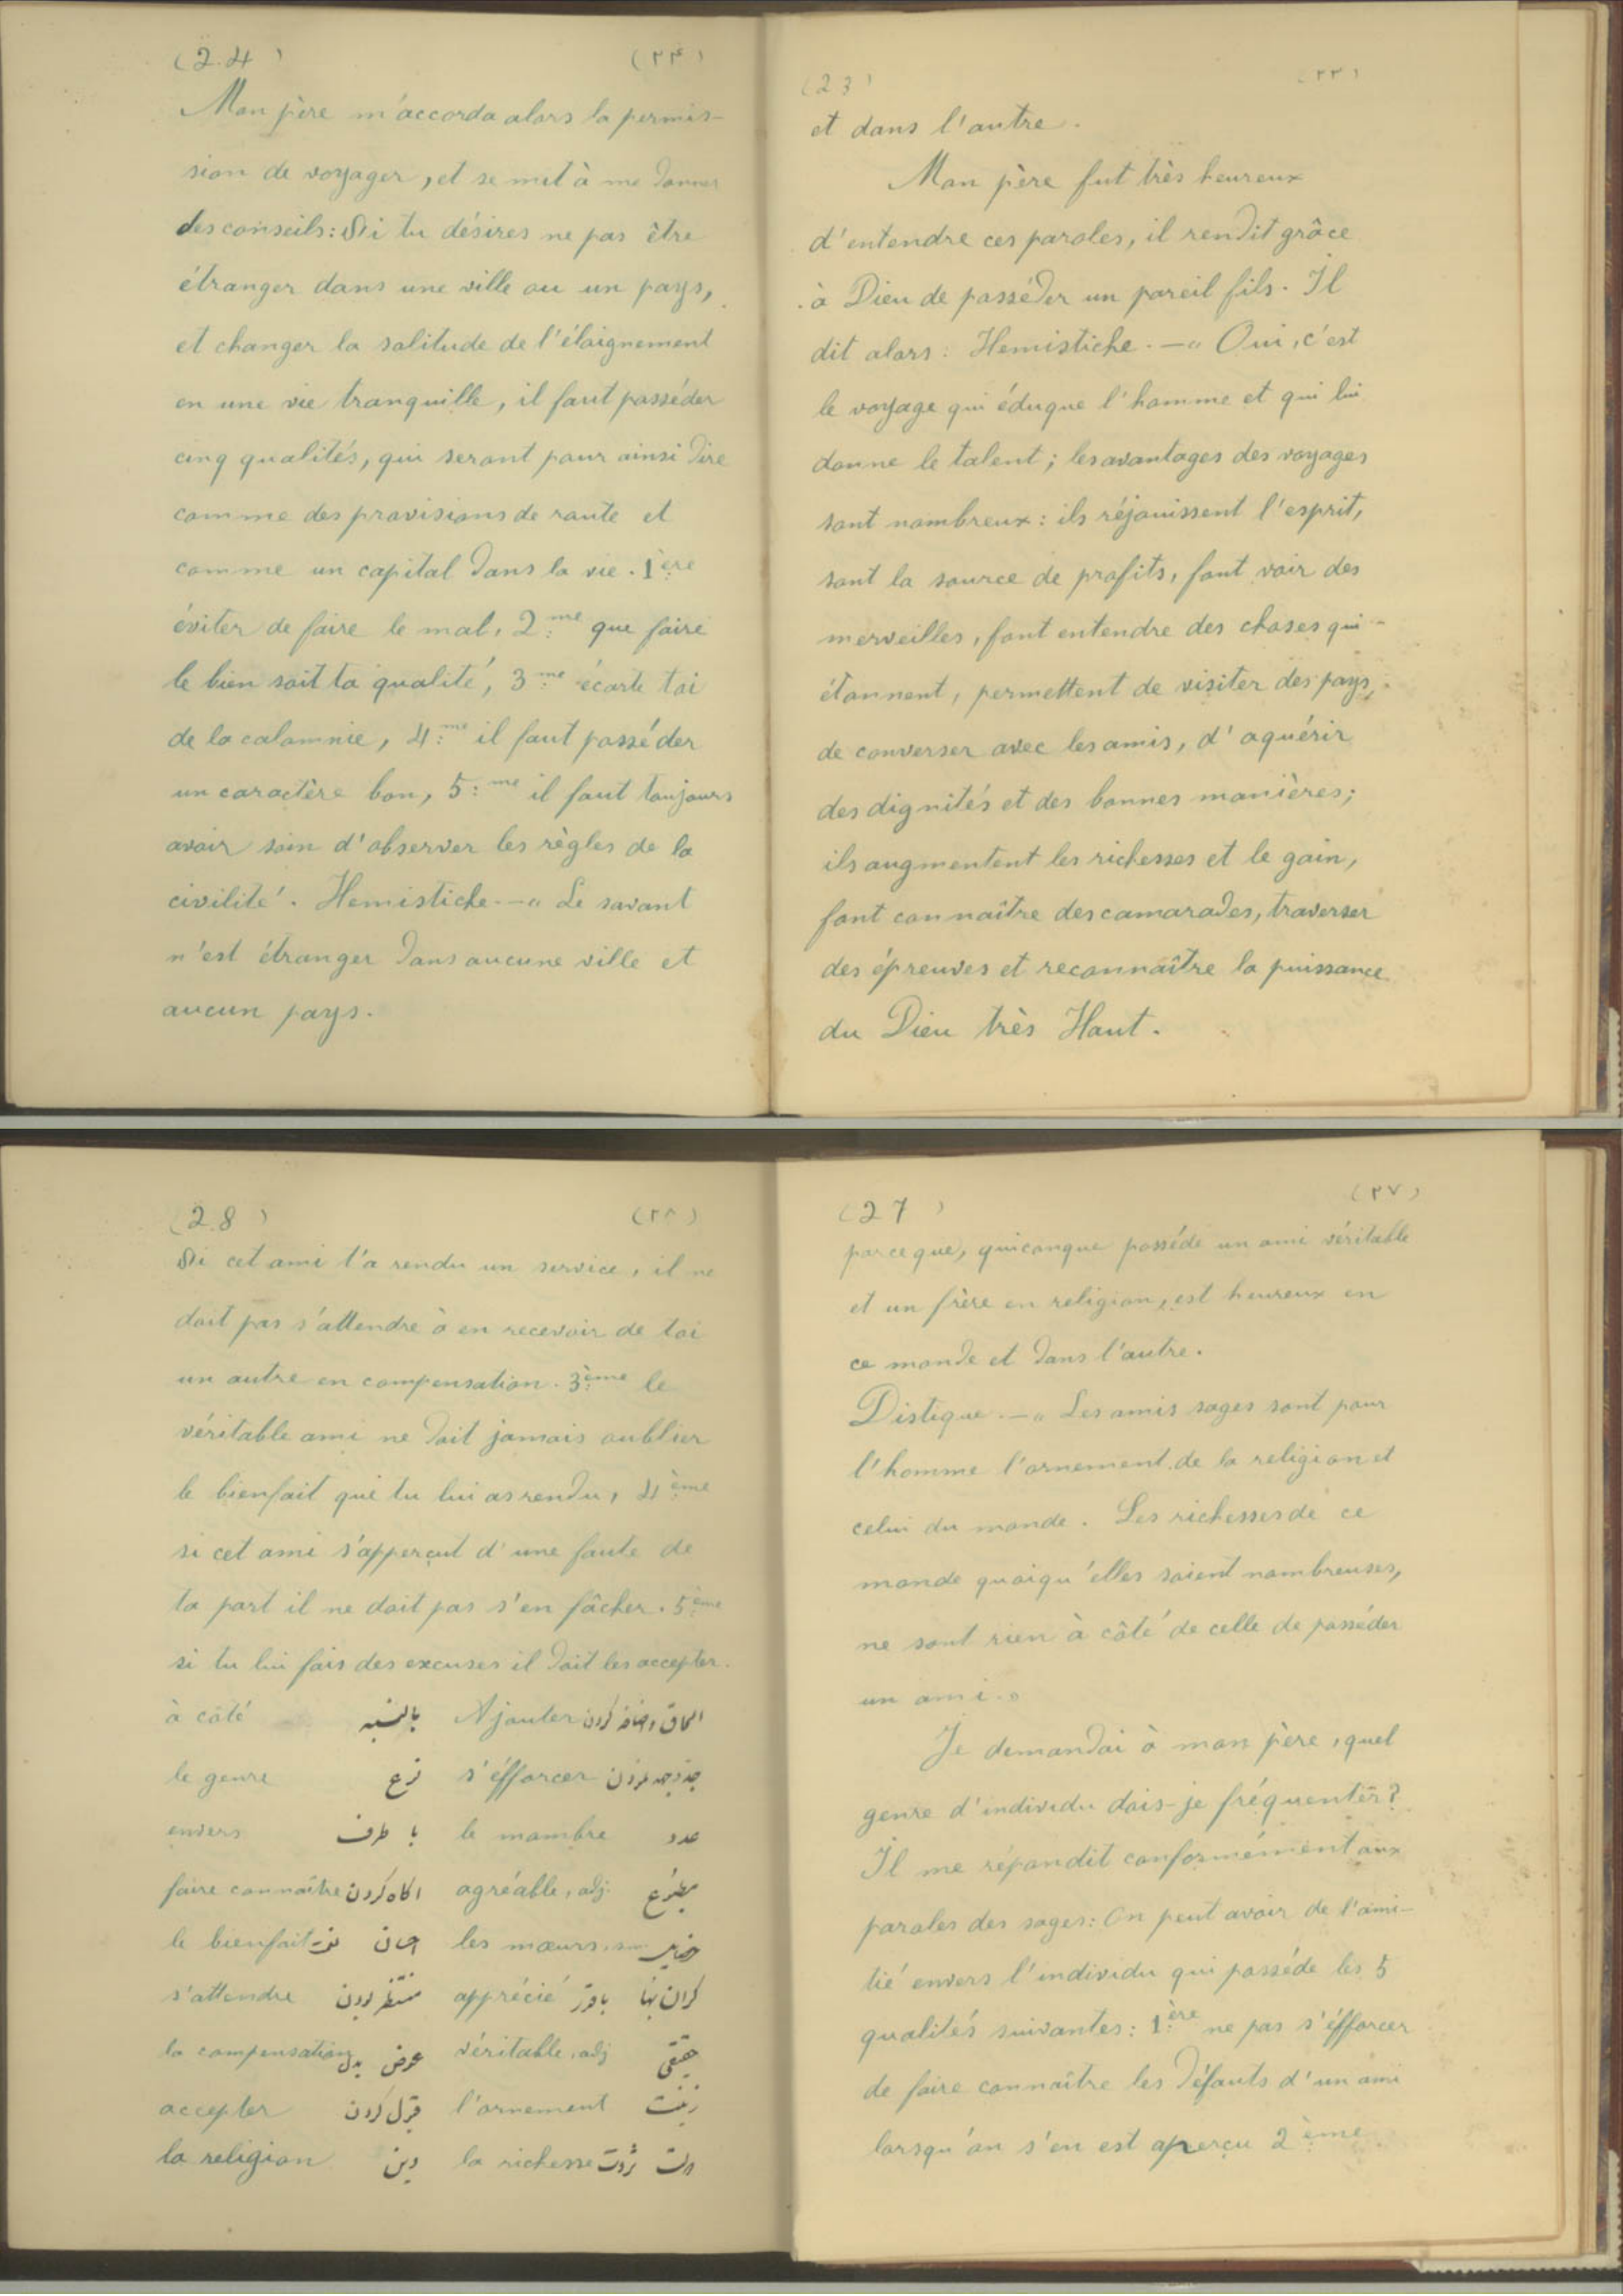 (23) (۲۳)
et dans l'autre.
Mon père fut très heureux
d'entendre ces paroles, il rendit grâce
à Dieu de posséder un pareil fils. Il
dit alors: Hemistiche.—« Oui, c'est
le voyage qui éduque l'homme et qui lui
donne le talent; les avantages des voyages
sont nombreux: ils réjouissent l'esprit,
sont la source de profits, font voir des
merveilles, font entendre des choses qui
étonnent, permettent de visiter des pays,
de converser avec les amis, d'aquérir
des dignités et des bonnes manières;
ils augmentent les richesses et le gain,
font connaître des camarades, traverser
des épreuves et reconnaître la puissance
du Dieu très Haut.
(24) (۲۴)
Mon père m'accorda alors la permis-
sion de voyager, et se mit à me donner
des conseils: Si tu désires ne pas être
étranger dans une ville ou un pays,
et changer la solitude de l'éloignement
en une vie tranquille, il faut posséder
cinq qualités, qui seront pour ainsi dire
comme des provisions de route et
comme un capital dans la vie. 1ère
éviter de faire le mal, 2me que faire
le bien soit ta qualité, 3me écarte toi
de la calomnie, 4me il faut posséder
un caractère bon, 5me il faut toujours
avoir soin d'observer les règles de la
civilité. Hemistiche.—« Le savant
n'est étranger dans aucune ville et
aucun pays.
(27) (۲۷)
parceque, quiconque posséde un ami véritable
et un frère en religion, est heureux en
ce monde et dans l'autre.
Distique.—« Les amis sages sont pour
l'homme l'ornement de la religion et
celui du monde. Les richesses de ce
monde quoiqu'elles soient nombreuses,
ne sont rien à côté de celle de posséder
un ami.»
Je demandai à mon père, quel
genre d'individu dois-je fréquenter?
Il me répondit conformément aux
paroles des sages: On peut avoir de l'ami-
tié envers l'individu qui posséde les 5
qualités suivantes: 1ère ne pas s'éfforcer
de faire connaître les défauts d'un ami
lorsqu'on s'en est aperçu 2ème
(28) (۲۸)
Si cet ami t'a rendu un service, il ne
doit pas s'attendre à en recevoir de toi
un autre en compensation. 3ème le
véritable ami ne doit jamais oublier
le bienfait que tu lui as rendu, 4ème
si cet ami s'apperçut d'une faute de
ta part il ne doit pas s'en fâcher. 5ème
si tu lui fais des excuses il doit les accepter.
à côté بالنسبه Ajouter الحاق و اضافه کردن
le genre نوع s'éfforcer جد و جهد کردن
envers با طرف le nombre عدد
faire connaître آگاه کردن agréable, adj. مطبوع
le bienfait احسان les mœurs
s'attendre منتظر بودن apprécié گران بها با قدر
la compensation عوض بدل véritable, adj حقیقی
accepter قبول کردن l'ornement زینت
la religion دین la richesse ثروت